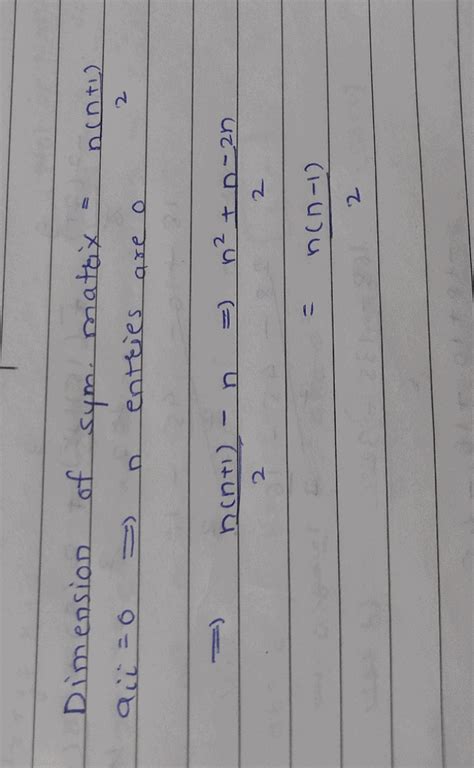 Dimension of sym. matrix = n(n+1)/2
aii = 0 ⇒ n enteies are 0
⇒ n(n+1)/2 - n ⇒ n² + n - 2n/2
= n(n-1)/2